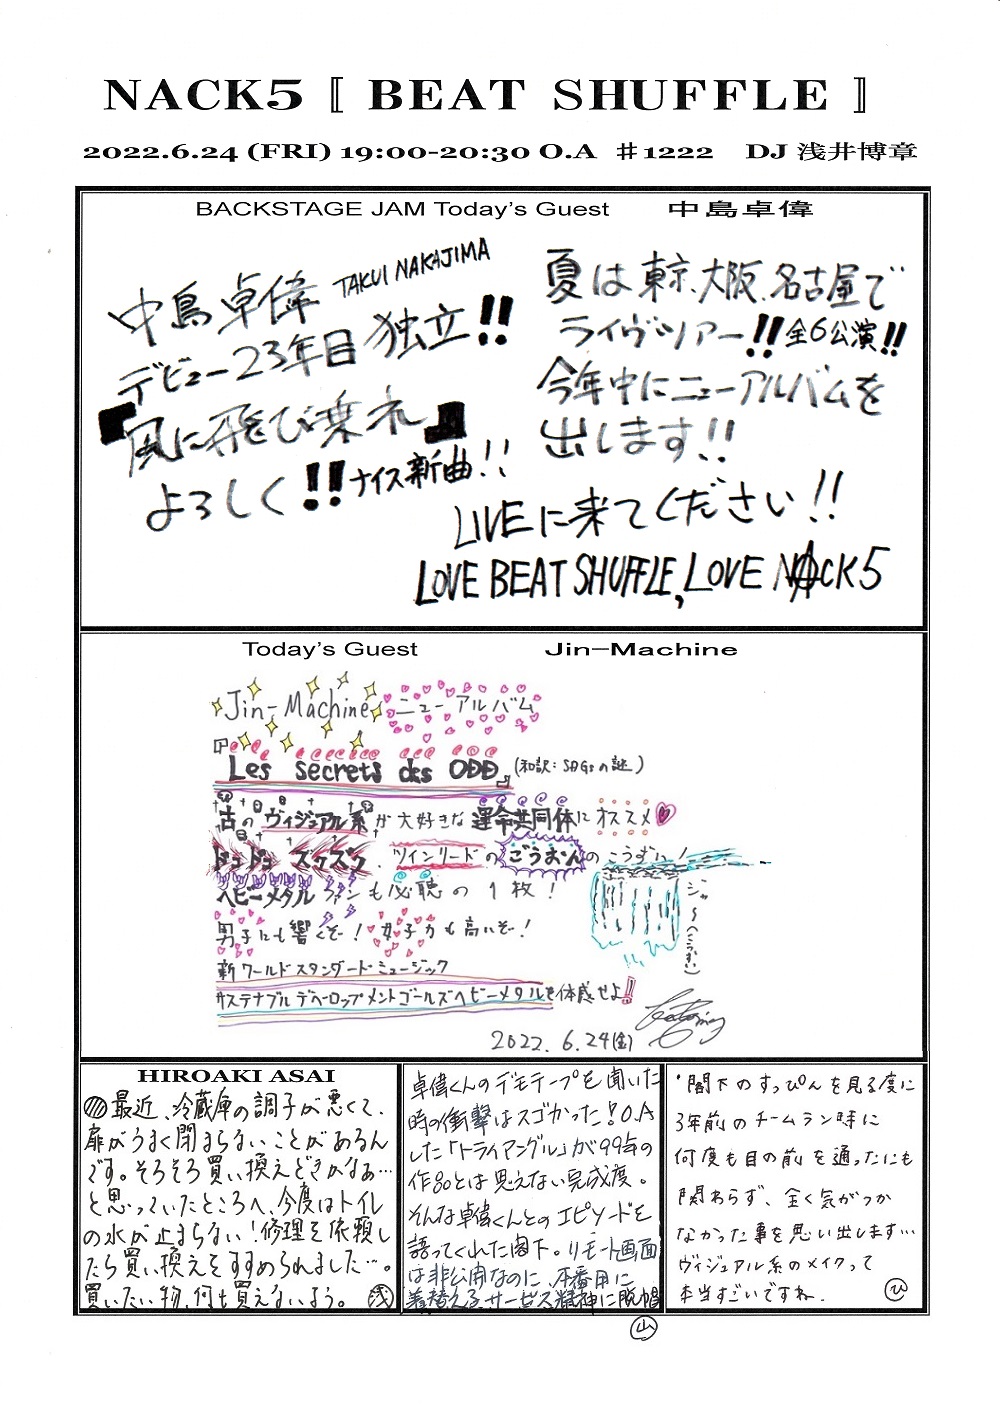 NACK5 〚 BEAT SHUFFLE 〛
2022.6.24 (FRI) 19:00-20:30 O.A ♯1222 DJ 浅井博章
BACKSTAGE JAM Today's Guest 中島卓偉
中島卓偉 TAKUI NAKAJIMA
デビュー23年目 独立!!
『風に飛び乗れ』
よろしく!! ナイス新曲!!
夏は東京、大阪、名古屋で
ライヴツアー!! 全6公演!!
今年中にニューアルバムを
出します!!
LIVEに来てください!!
LOVE BEAT SHUFFLE, LOVE NACK5
Today's Guest Jin-Machine
Jin-Machine ニューアルバム
『Les secrets des ODD』(和訳:SDGsの謎)
古のヴィジュアル系が大好きな運命共同体にオススメ
ドコドコ ズクズク、ツインリードのごうおんのこうずい!
ヘビーメタルファンも必聴の1枚!
ジャ〜(こうずい)
男子にも響くぞ!女子力も高いぞ!
新ワールドスタンダードミュージック
サステナブルデベロップメントゴールズヘビーメタルを体感せよ!!
2022.6.24(金)
HIROAKI ASAI
最近、冷蔵庫の調子が悪くて、
扉がうまく閉まらないことがあるん
です。そろそろ買い換えどきかなぁ…
と思っていたところへ、今度はトイレ
の水が止まらない!修理を依頼し
たら買い換えをすすめられました…。
買いたい物、何も買えないよう。 浅
卓偉くんのデモテープを聞いた
時の衝撃はスゴかった!O.A
した「トライアングル」が99年の
作品とは思えない完成度。
そんな卓偉くんとのエピソードを
語ってくれた閣下。リモート画面
は非公開なのに、本番用に
着替えるサービス精神に脱帽
山
・閣下のすっぴんを見る度に
3年前のチームラン時に
何度も目の前を通ったにも
関わらず、全く気がつか
なかった事を思い出します…
ヴィジュアル系のメイクって
本当すごいですね. ひ